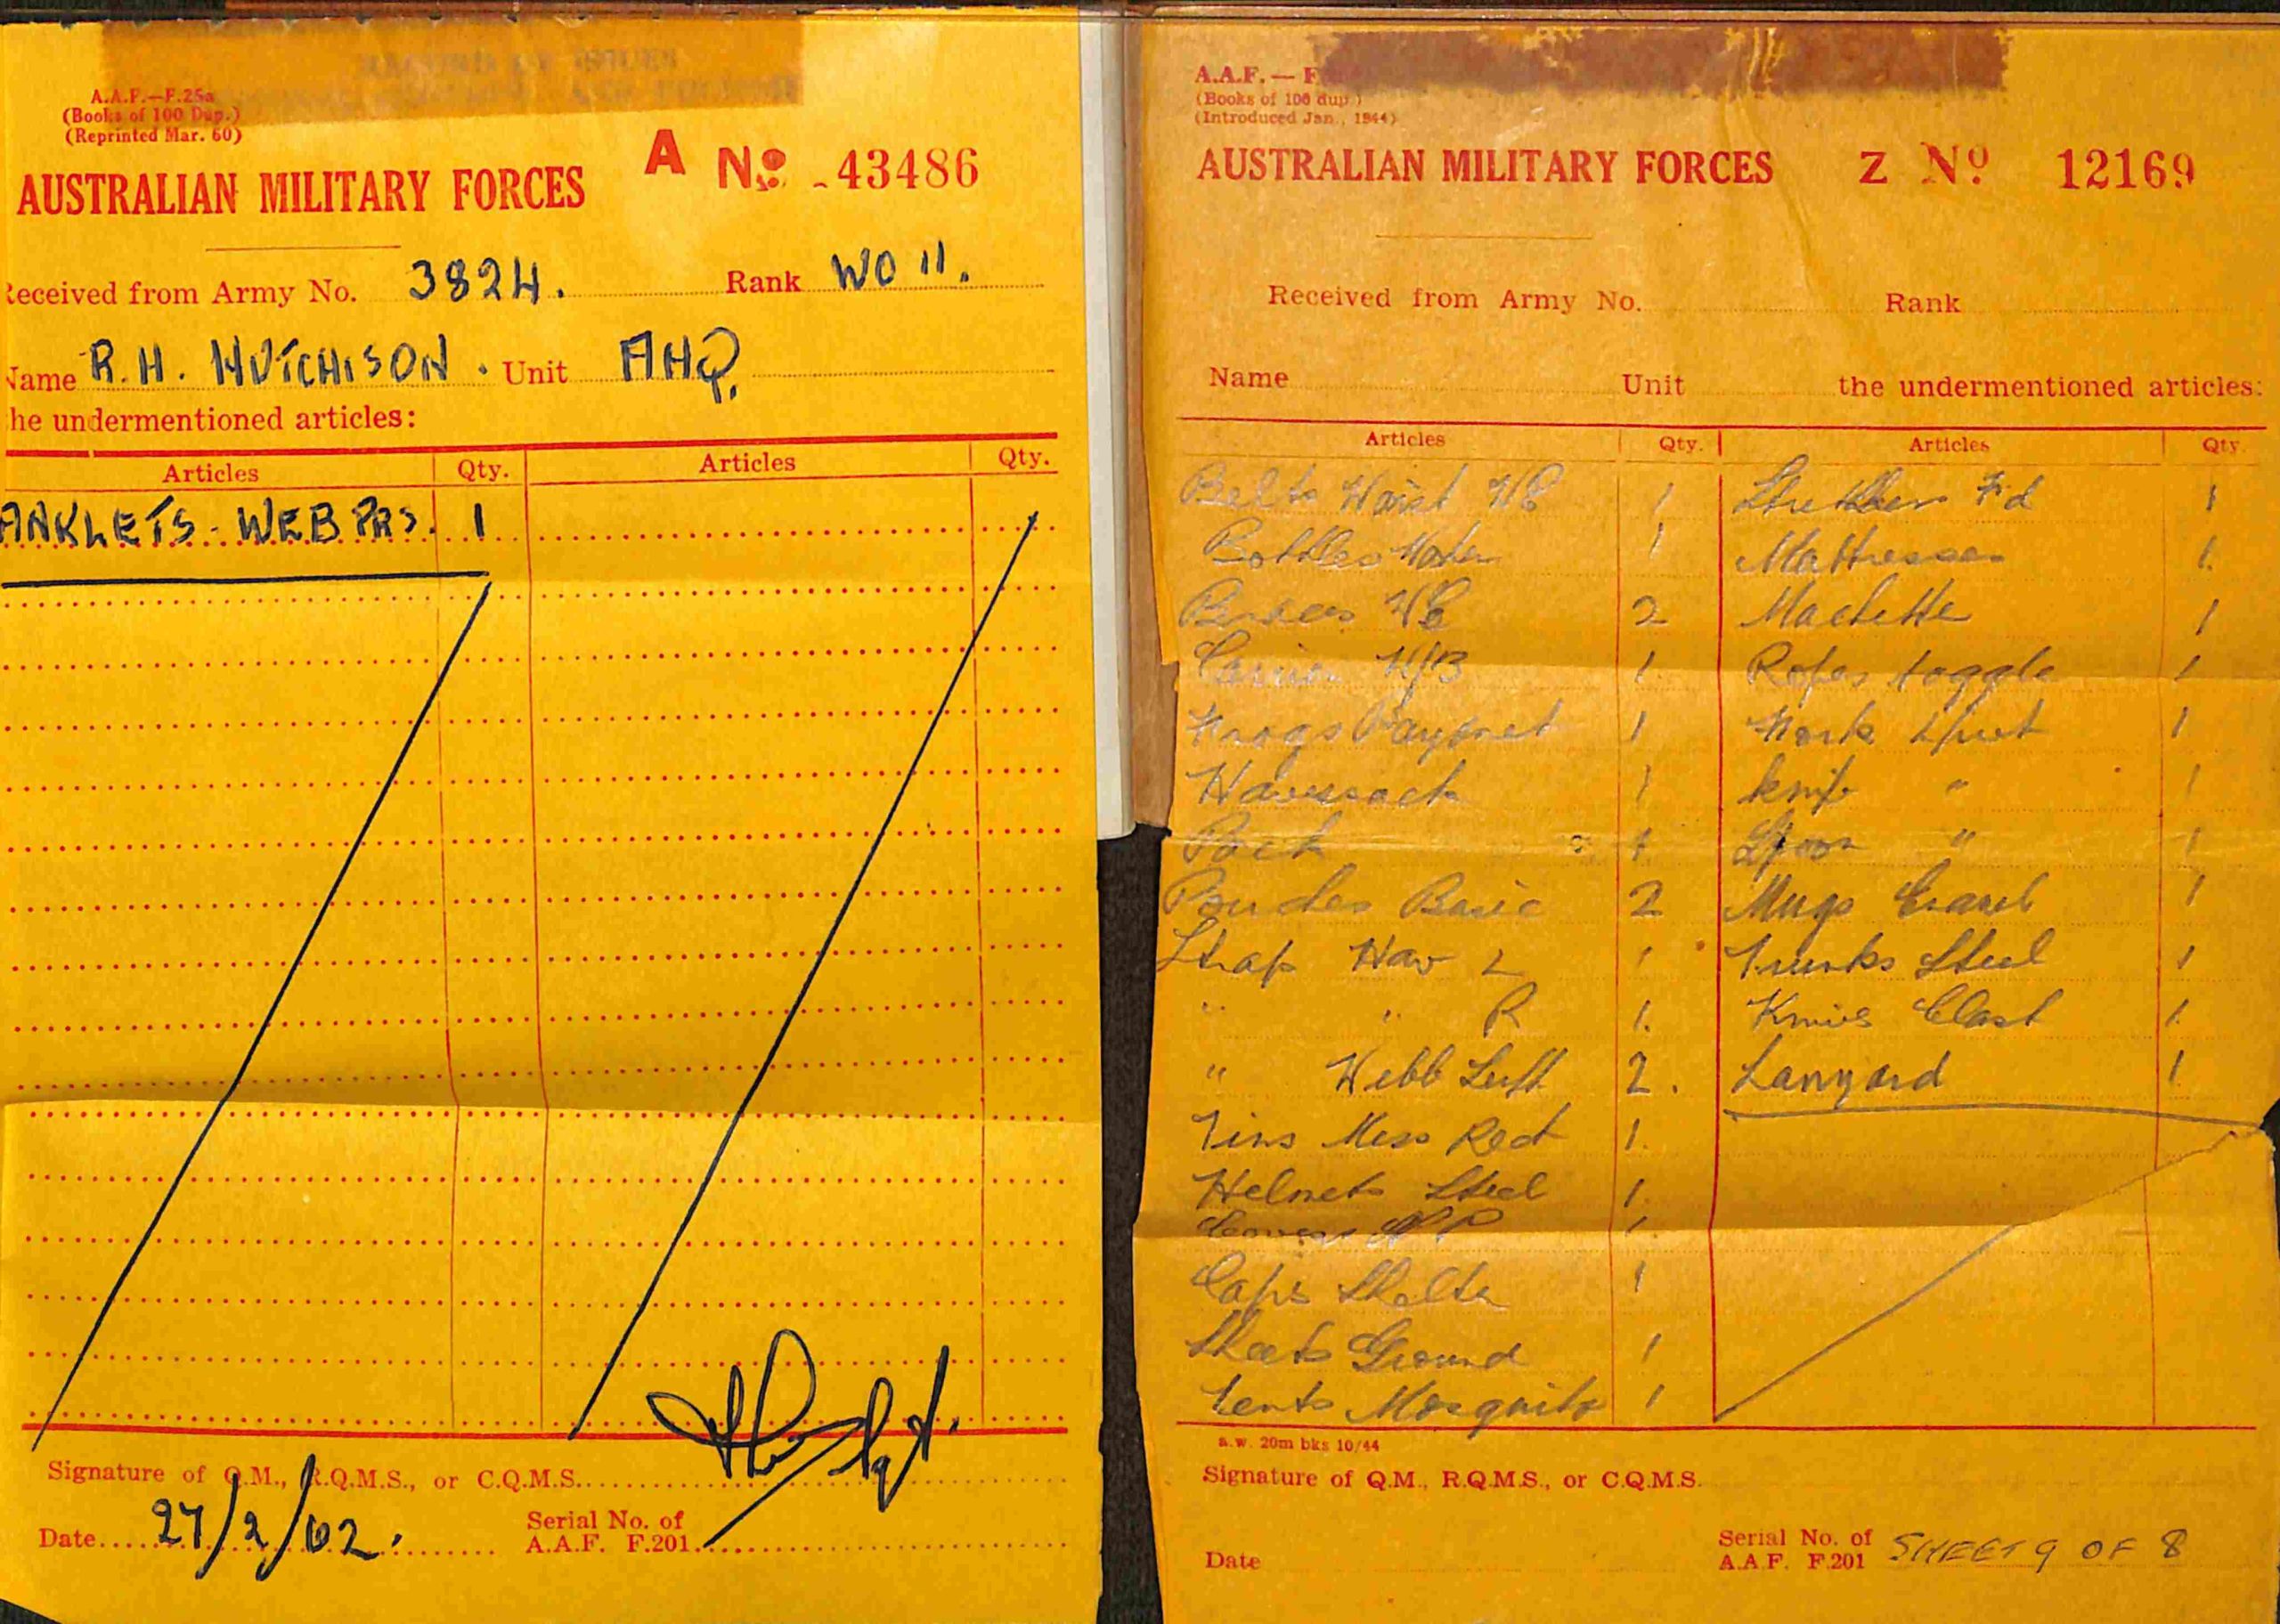 RECORD OF ISSUES
A.A.F.—F.25a
(Books of 100 Dup.)
(Reprinted Mar. 60)
AUSTRALIAN MILITARY FORCES A No. 43486
Received from Army No. 3824. Rank WO II.
Name R.H. HUTCHISON. Unit AHQ.
the undermentioned articles:
Articles Qty. Articles Qty.
ANKLETS - WEB PRS. 1
Signature of Q.M., R.Q.M.S., or C.Q.M.S. Sgt.
Date 27/2/62.
Serial No. of
A.A.F. F.201
A.A.F.— F
(Books of 100 dup.)
(Introduced Jan., 1944)
AUSTRALIAN MILITARY FORCES Z No 12169
Received from Army No. Rank
Name Unit the undermentioned articles:
Articles Qty. Articles Qty.
Belts Waist WE 1 Stretcher F'd 1
Bottles Water 1 Mattresses 1.
Braces WE 2 Machette 1
Carrier W/B 1. Ropes toggle 1
Frogs Bayonet 1 Fork 1
Haversack 1 knife " 1
Pack 1 Spoon " 1
Pouches Basic 2 Mugs Enamel 1
Strap Hav L 1 Trunks Steel 1
" " R 1. Knives Clasp 1.
" Webb 2. Lanyard 1
Tins Mess Rect 1.
Helmets Steel 1.
Covers 1.
Capes Shelter 1
Sheets Ground 1
Tents Mosquito 1
a.w. 20m bks 10/44
Signature of Q.M., R.Q.M.S., or C.Q.M.S.
Date
Serial No. of
A.A.F. F.201 SHEET 9 OF 8